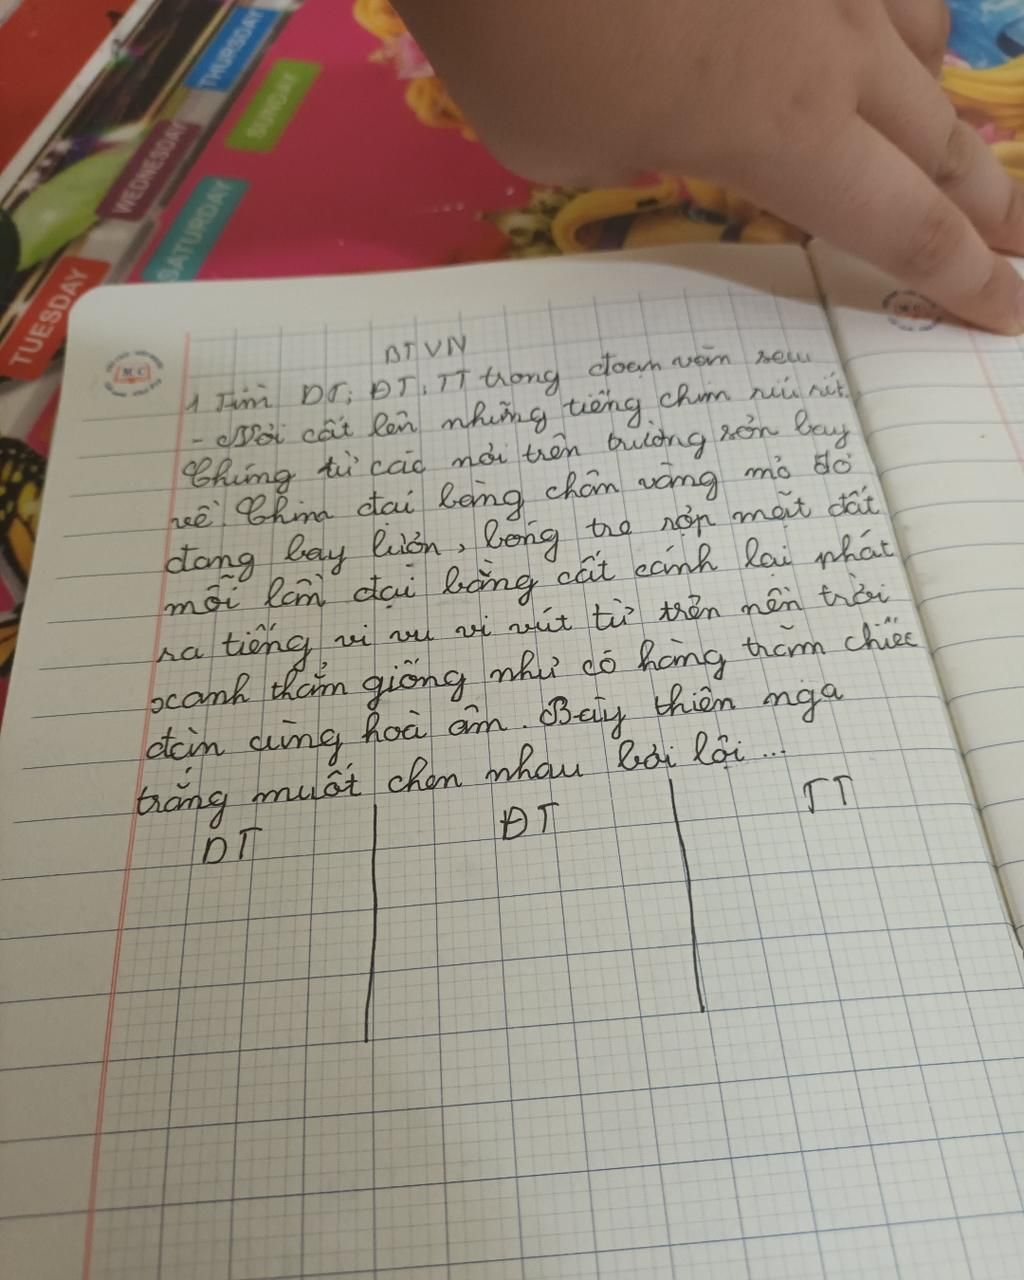 THURSDAY
SUNDAY
WEDNESDAY
SATURDAY
TUESDAY
BTVN
1 Tìm DT; ĐT; TT trong đoạn văn sau
- Nơi cất lên những tiếng chim ríu rít.
Chúng từ các nơi trên trường sơn bay
về. Chim đại bàng chân vàng mỏ đỏ
đang bay lượn, bóng tre rợp mặt đất
mỗi lần đại bàng cất cánh lại phát
ra tiếng vi vu vi vút từ trên nền trời
xanh thẳm giống như có hàng trăm chiếc
đàn cùng hoà âm. Bầy thiên nga
trắng muốt chen nhau bơi lội...
DT ĐT TT